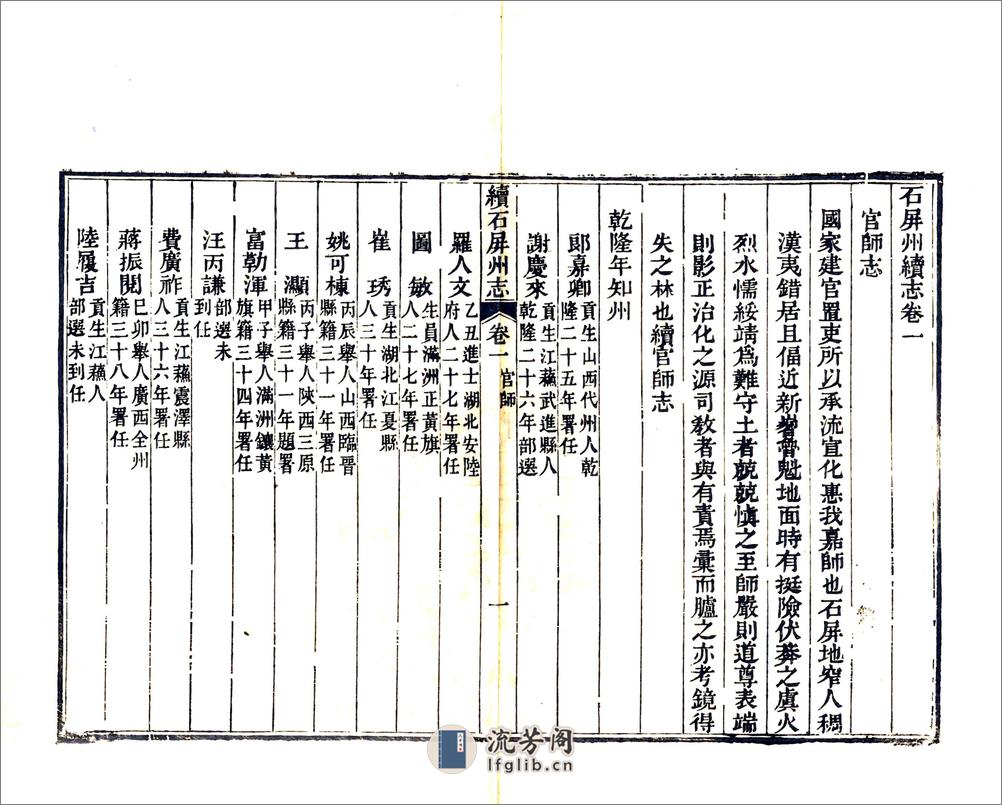 石屏州續志卷一
官師志
國家建官置吏所以承流宣化惠我嘉師也石屏地窄人稠
漢夷錯居且偪近新嶜骨魁地面時有挺險伏莽之虞火
烈水懦綏靖爲難守土者兢兢慎之至師嚴則道尊表端
則影正治化之源司教者與有責焉彙而臚之亦考鏡得
失之林也續官師志
乾隆年知州
郎嘉卿貢生山西代州人乾
隆二十五年署任
謝慶來貢生江蘇武進縣人
乾隆二十六年部選
續石屏州志 卷一 官師 一
羅人文乙丑進士湖北安陸
府人二十七年署任
圖敏生員滿洲正黃旗
人二十七年署任
崔琇貢生湖北江夏縣
人三十年署任
姚可棟丙辰舉人山西臨晉
縣籍三十一年署任
王灝丙子舉人陝西三原
縣籍三十一年題署
富勒渾甲子舉人滿洲鑲黃
旗籍三十四年署任
汪丙謙部選未
到任
費廣祚貢生江蘇震澤縣
人三十六年署任
蔣振閱己卯舉人廣西全州
籍三十八年署任
陸履吉貢生江蘇人
部選未到任
流芳阁
lfglib.cn